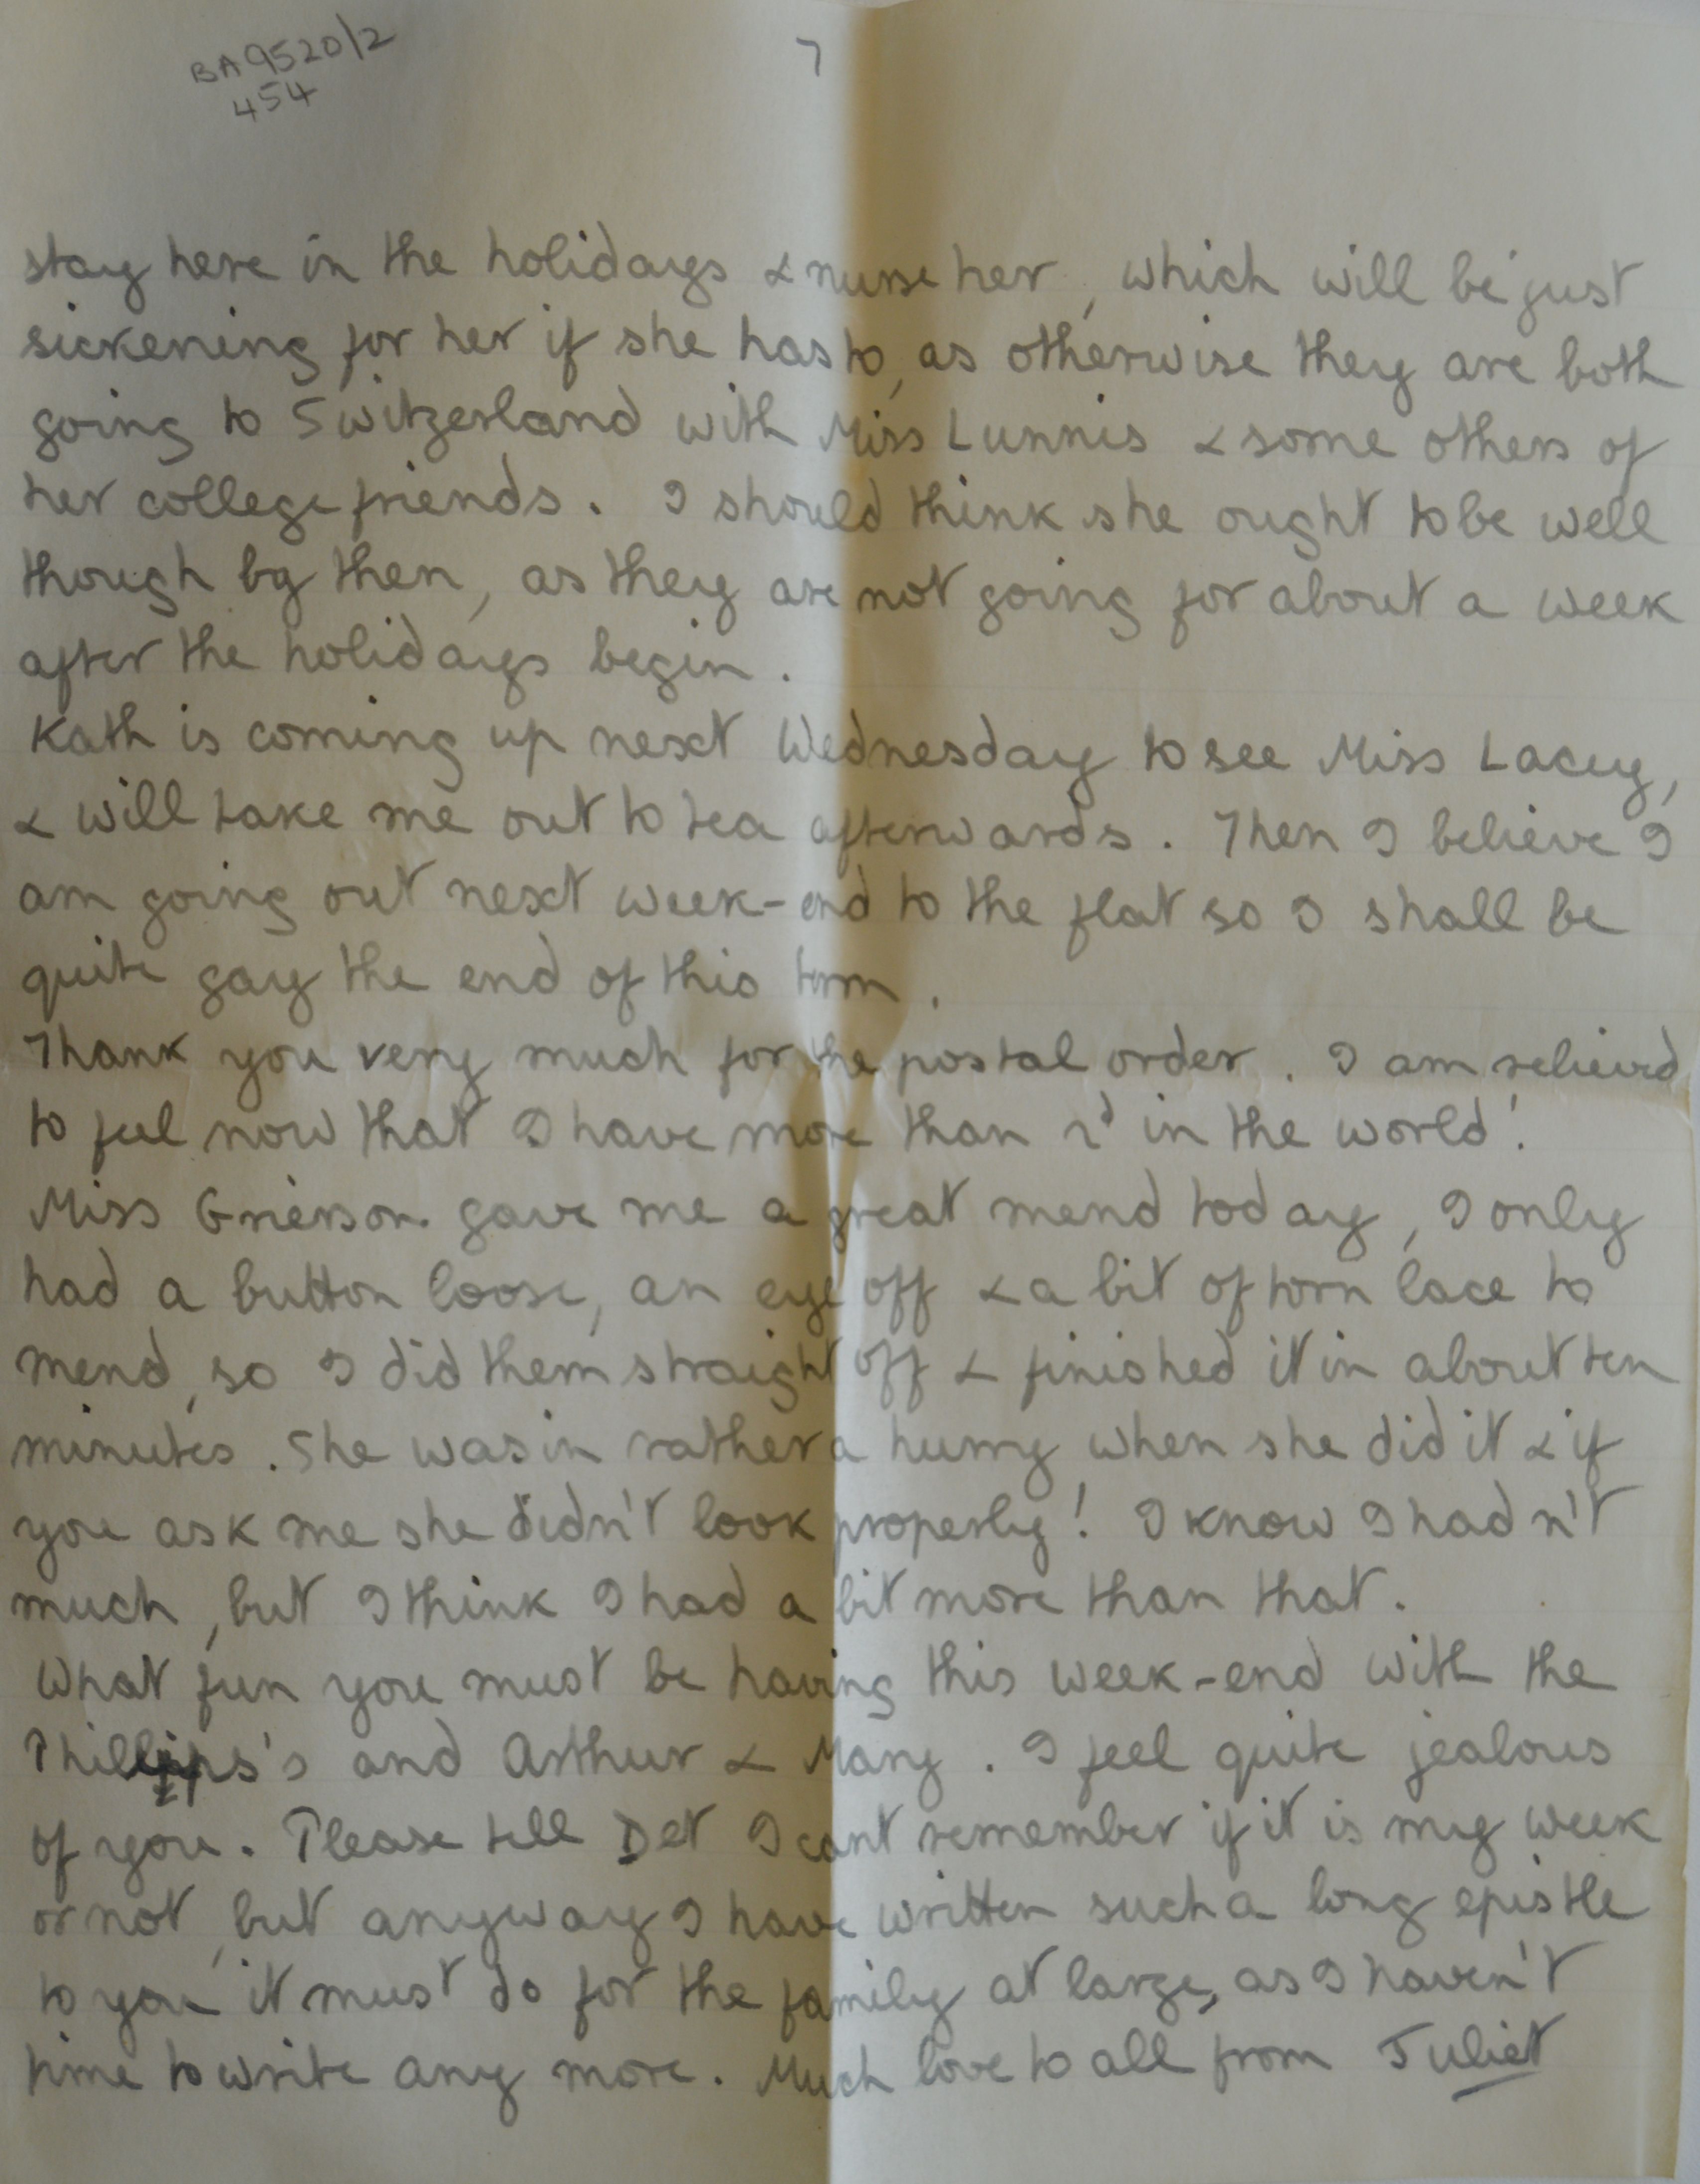 BA9520/2
454
7
stay here in the holidays & nurse her, which will be just
sickening for her if she has to, as otherwise they are both
going to Switzerland with Miss Lunnis & some others of
her college friends. I should think she ought to be well
though by then, as they are not going for about a week
after the holidays begin.
Kath is coming up next Wednesday to see Miss Lacey,
& will take me out to tea afterwards. Then I believe I
am going out next week-end to the flat so I shall be
quite gay the end of this term.
Thank you very much for the postal order. I am relieved
to feel now that I have more than 2d in the world!
Miss Grierson gave me a great mend today, I only
had a button loose, an eye off & a bit of torn lace to
mend, so I did them straight off & finished it in about ten
minutes. She was in rather a hurry when she did it & if
you ask me she didn't look properly! I know I hadn't
much, but I think I had a bit more than that.
What fun you must be having this week-end with the
Phillips's and Arthur & Mary. I feel quite jealous
of you. Please tell Det I cant remember if it is my week
or not, but anyway I have written such a long epistle
to you it must do for the family at large, as I haven't
time to write any more. Much love to all from Juliet